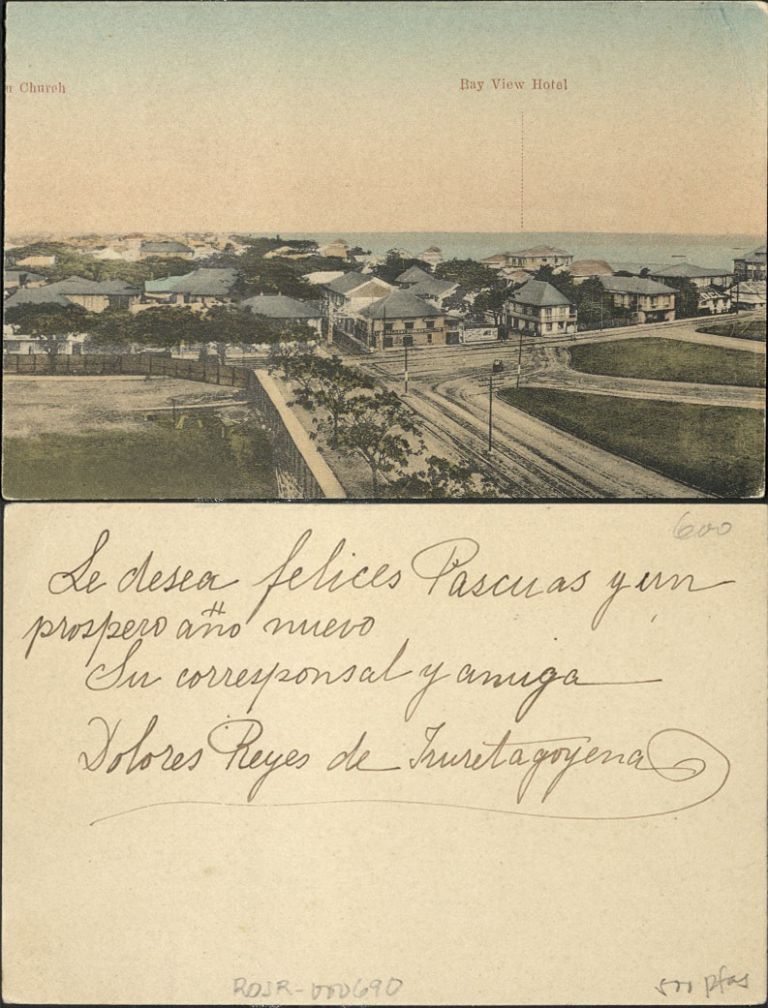 n Church
Bay View Hotel
600
Le desea felices Pascuas y un
prospero año nuevo
Su corresponsal y amiga
Dolores Reyes de Iruretagoyena
ROJR-000690
500 ptas